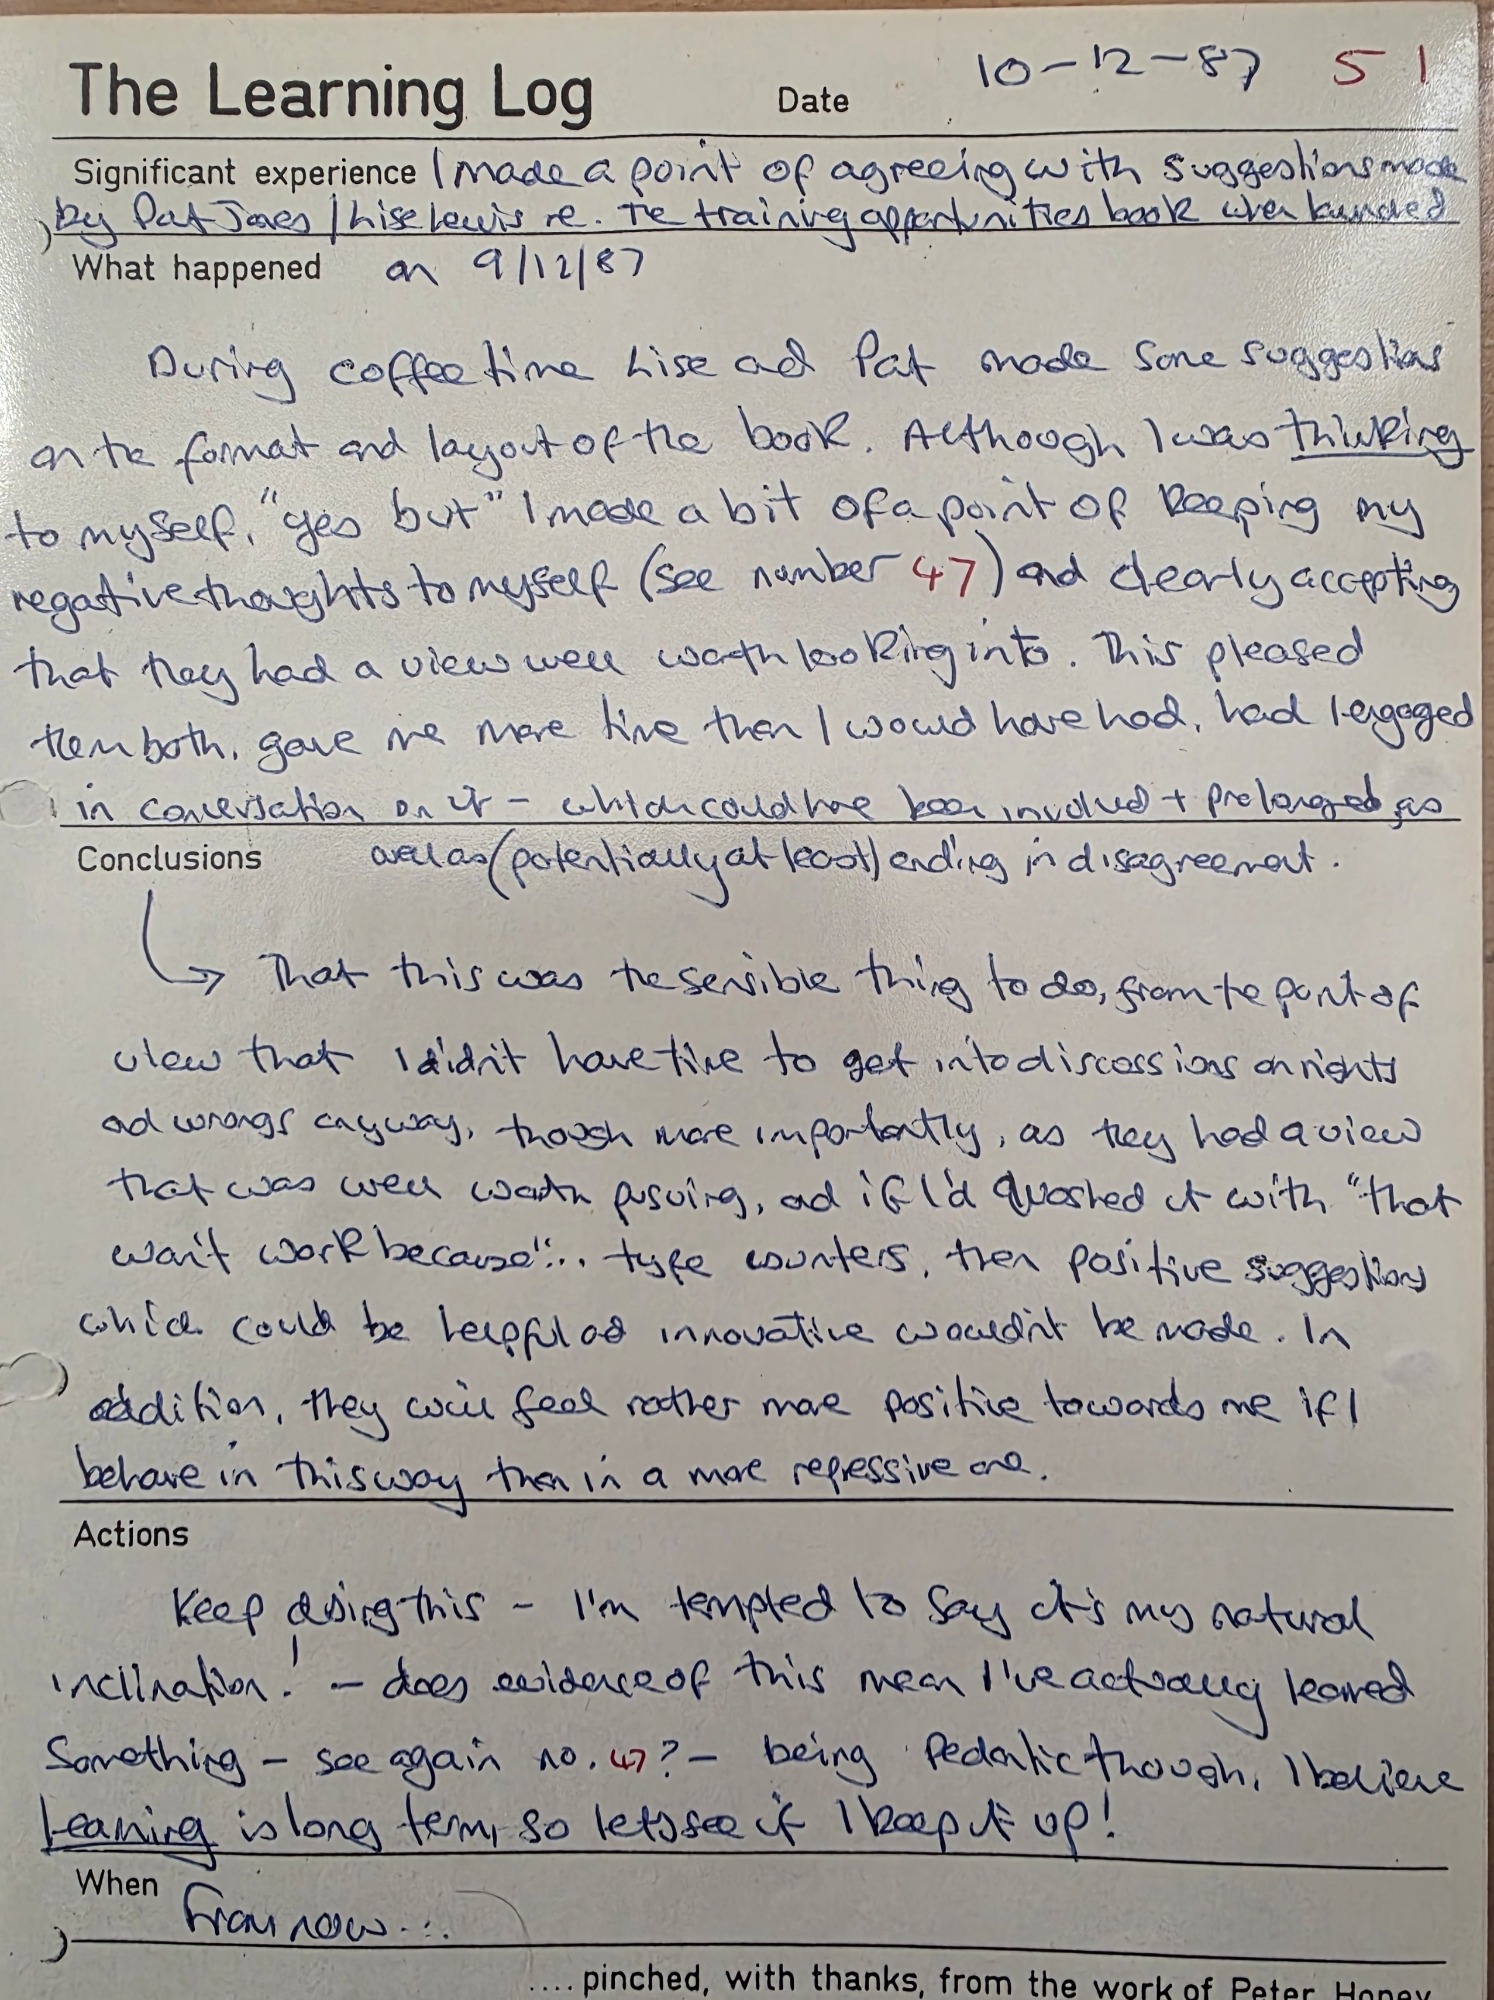 The Learning Log Date 10-12-87 51
Significant experience I made a point of agreeing with suggestions made
by Pat Jones / Lise Lewis re. the training opportunities book when launched
What happened on 9/12/87
During coffee time Lise and Pat made some suggestions
on the format and layout of the book. Although I was thinking
to myself, "yes but" I made a bit of a point of keeping my
negative thoughts to myself (see number 47) and clearly accepting
that they had a view well worth looking into. This pleased
them both, gave me more time then I would have had, had I engaged
in conversation on it - which could have been involved + prolonged, as
Conclusions well as (potentially at least) ending in disagreement.
→ That this was the sensible thing to do, from the point of
view that I didn't have time to get into discussions on rights
and wrongs anyway, though more importantly, as they had a view
that was well worth pursuing, and if I'd quashed it with "that
won't work because"... type counters, then positive suggestions
which could be helpful and innovative wouldn't be made. In
addition, they will feel rather more positive towards me if I
behave in this way then in a more repressive one.
Actions
Keep doing this - I'm tempted to say it's my natural
inclination! - does evidence of this mean I've actually learned
something - see again no. 47? - being pedantic though, I believe
learning is long term, so lets see if I keep it up!
When From now...
.... pinched, with thanks, from the work of Peter Honey